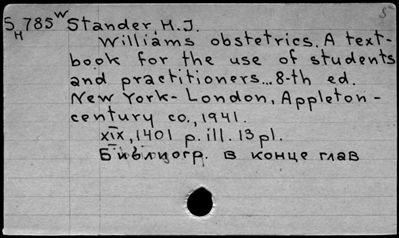 S 785 W Stander, H.J.
H
Williams obstetrics. A text-
book for the use of students
and practitioners... 8-th ed.
New York - London, Appleton -
century co., 1941.
XIX, 1401 p. ill. 13 pl.
Библиогр. в конце глав